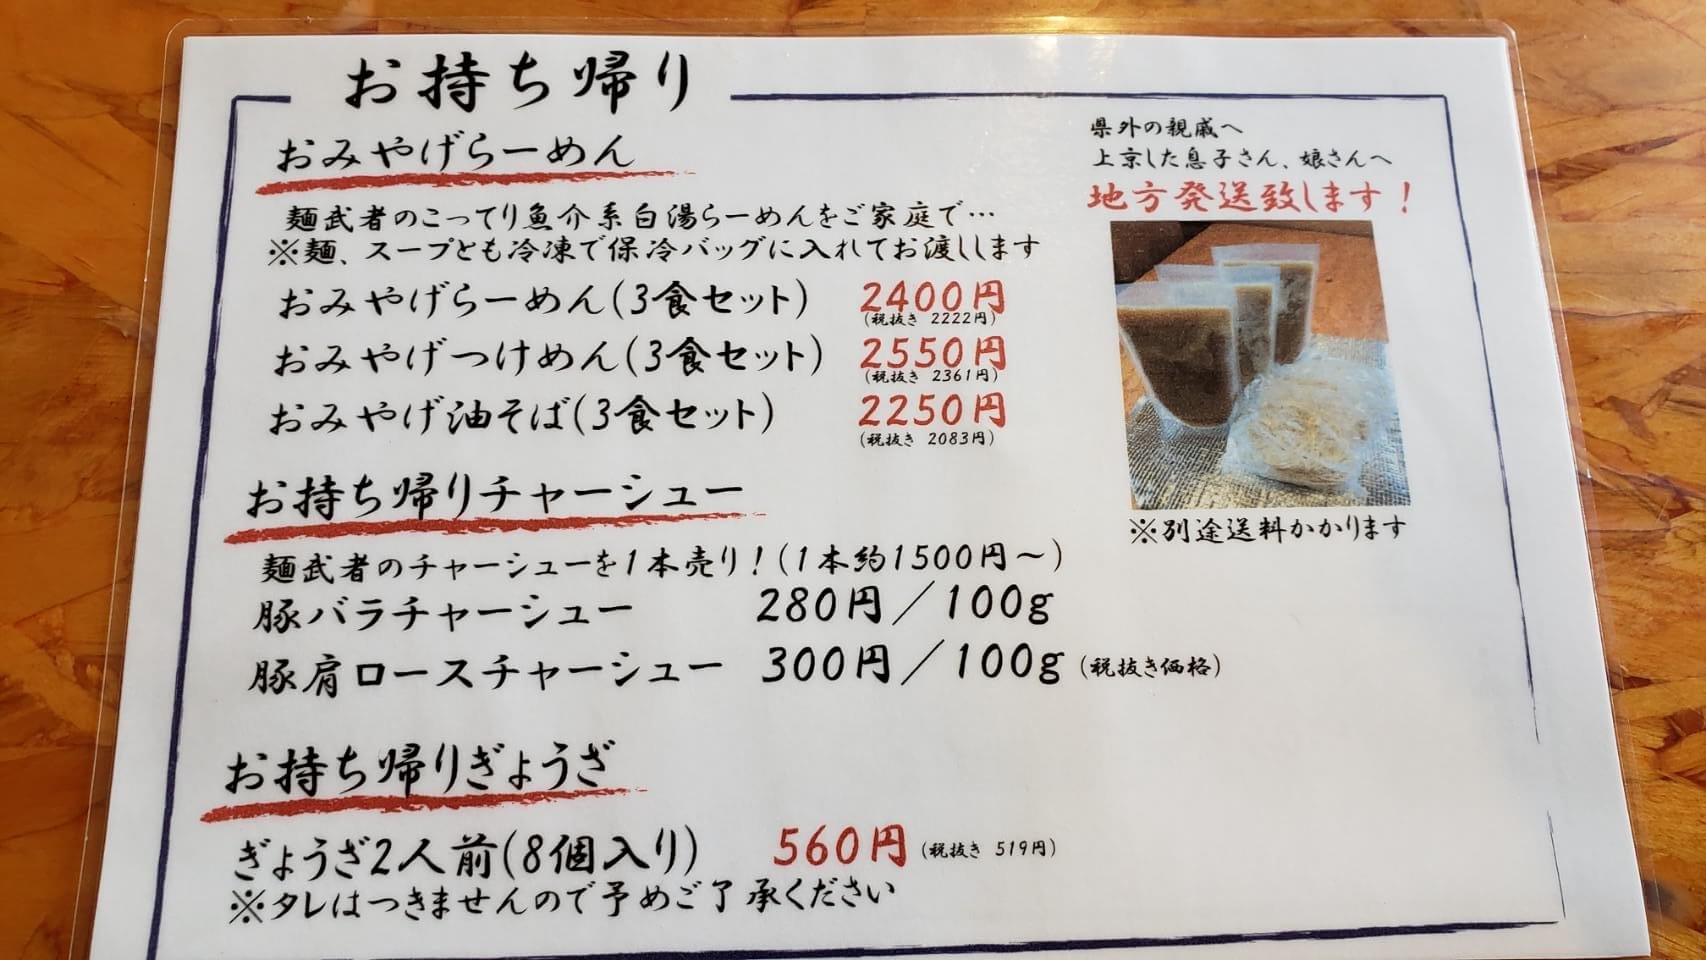 お持ち帰り
おみやげらーめん
麺武者のこってり魚介系白湯らーめんをご家庭で…
※麺、スープとも冷凍で保冷バッグに入れてお渡しします
おみやげらーめん(3食セット) 2400円
(税抜き 2222円)
おみやげつけめん(3食セット) 2550円
(税抜き 2361円)
おみやげ油そば(3食セット) 2250円
(税抜き 2083円)
お持ち帰りチャーシュー
麺武者のチャーシューを1本売り!(1本約1500円～)
豚バラチャーシュー 280円／100g
豚肩ロースチャーシュー 300円／100g(税抜き価格)
お持ち帰りぎょうざ
ぎょうざ2人前(8個入り) 560円(税抜き 519円)
※タレはつきませんので予めご了承ください
県外の親戚へ
上京した息子さん、娘さんへ
地方発送致します!
※別途送料かかります